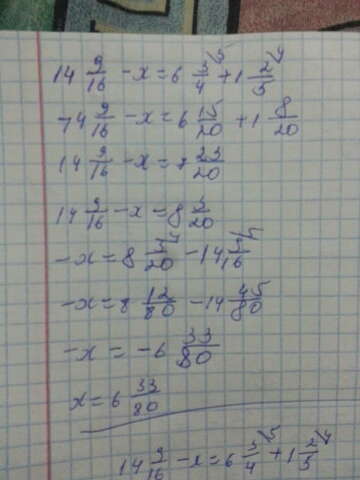 14 9/16 - x = 6 3/4 ⁵ + 1 2/5 ⁴
14 9/16 - x = 6 15/20 + 1 8/20
14 9/16 - x = 7 23/20
14 9/16 - x = 8 3/20
-x = 8 3/20 ⁴ - 14 9/16 ⁵
-x = 8 12/80 - 14 45/80
-x = -6 33/80
x = 6 33/80
14 9/16 - x = 6 3/4 ⁵ + 1 2/5 ⁴